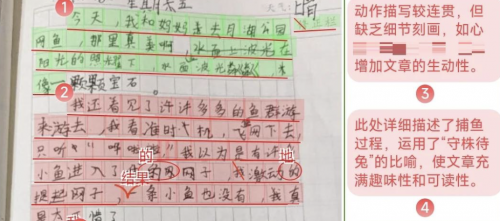 1
星期六
天气：晴
今天，我和妈妈去月湖公园
网鱼，那里真美啊，水面上波光在
阳光的照耀下，水面波光粼粼，
像一颗颗宝石。
2
我还看见了许许多多的鱼群游
来游去，我看准时机，飞网下去，
只听"哗啦啦"我以为是有许
的
地
小鱼进入了我的网子，我激动的
结果
提起网子，一条小鱼也没有，我真
动作描写较连贯，但
缺乏细节刻画，如心
增加文章的生动性。
3
此处详细描述了捕鱼
过程，运用了“守株待
兔”的比喻，使文章充
满趣味性和可读性。
4